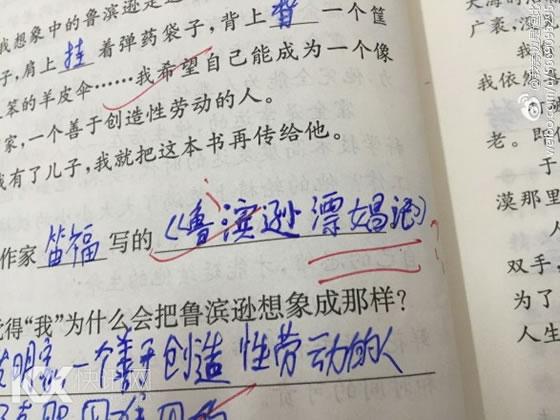 我想象中的鲁滨逊是
子,肩上挂着弹药袋子,背上背一个筐
笨的羊皮伞……我希望自己能成为一个像
家,一个善于创造性劳动的人。
我有了儿子,我就把这本书再传给他。
作家笛福写的《鲁滨逊漂娼记》
得“我”为什么会把鲁滨逊想象成那样?
发明家一个善于创造性劳动的人
广袤,深
我依然
老。即
于
漠那里
人
双手,
为了
人生